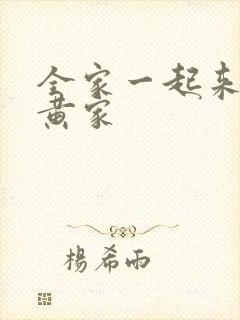 全家一起来
黄家
楊希雨